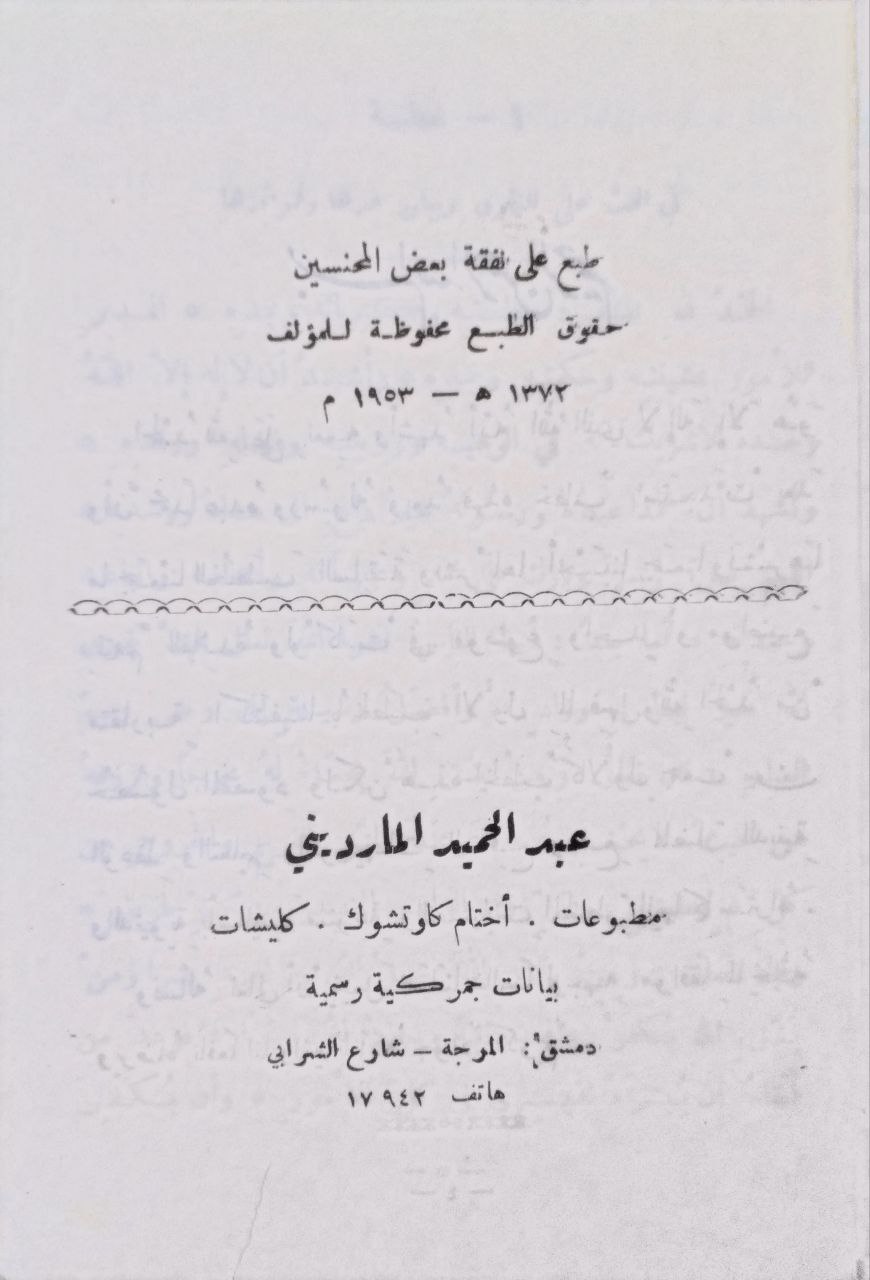 طبع على نفقة بعض المحنسين
حقوق الطبع محفوظة للمؤلف
١٣٧٢ ه — ١٩٥٣ م
عبد الحميد المارديني
مطبوعات . أختام كاوتشوك . كليشات
بيانات جمركية رسمية
دمشق : المرجة — شارع الشرابي
هاتف ١٧٩٤٢